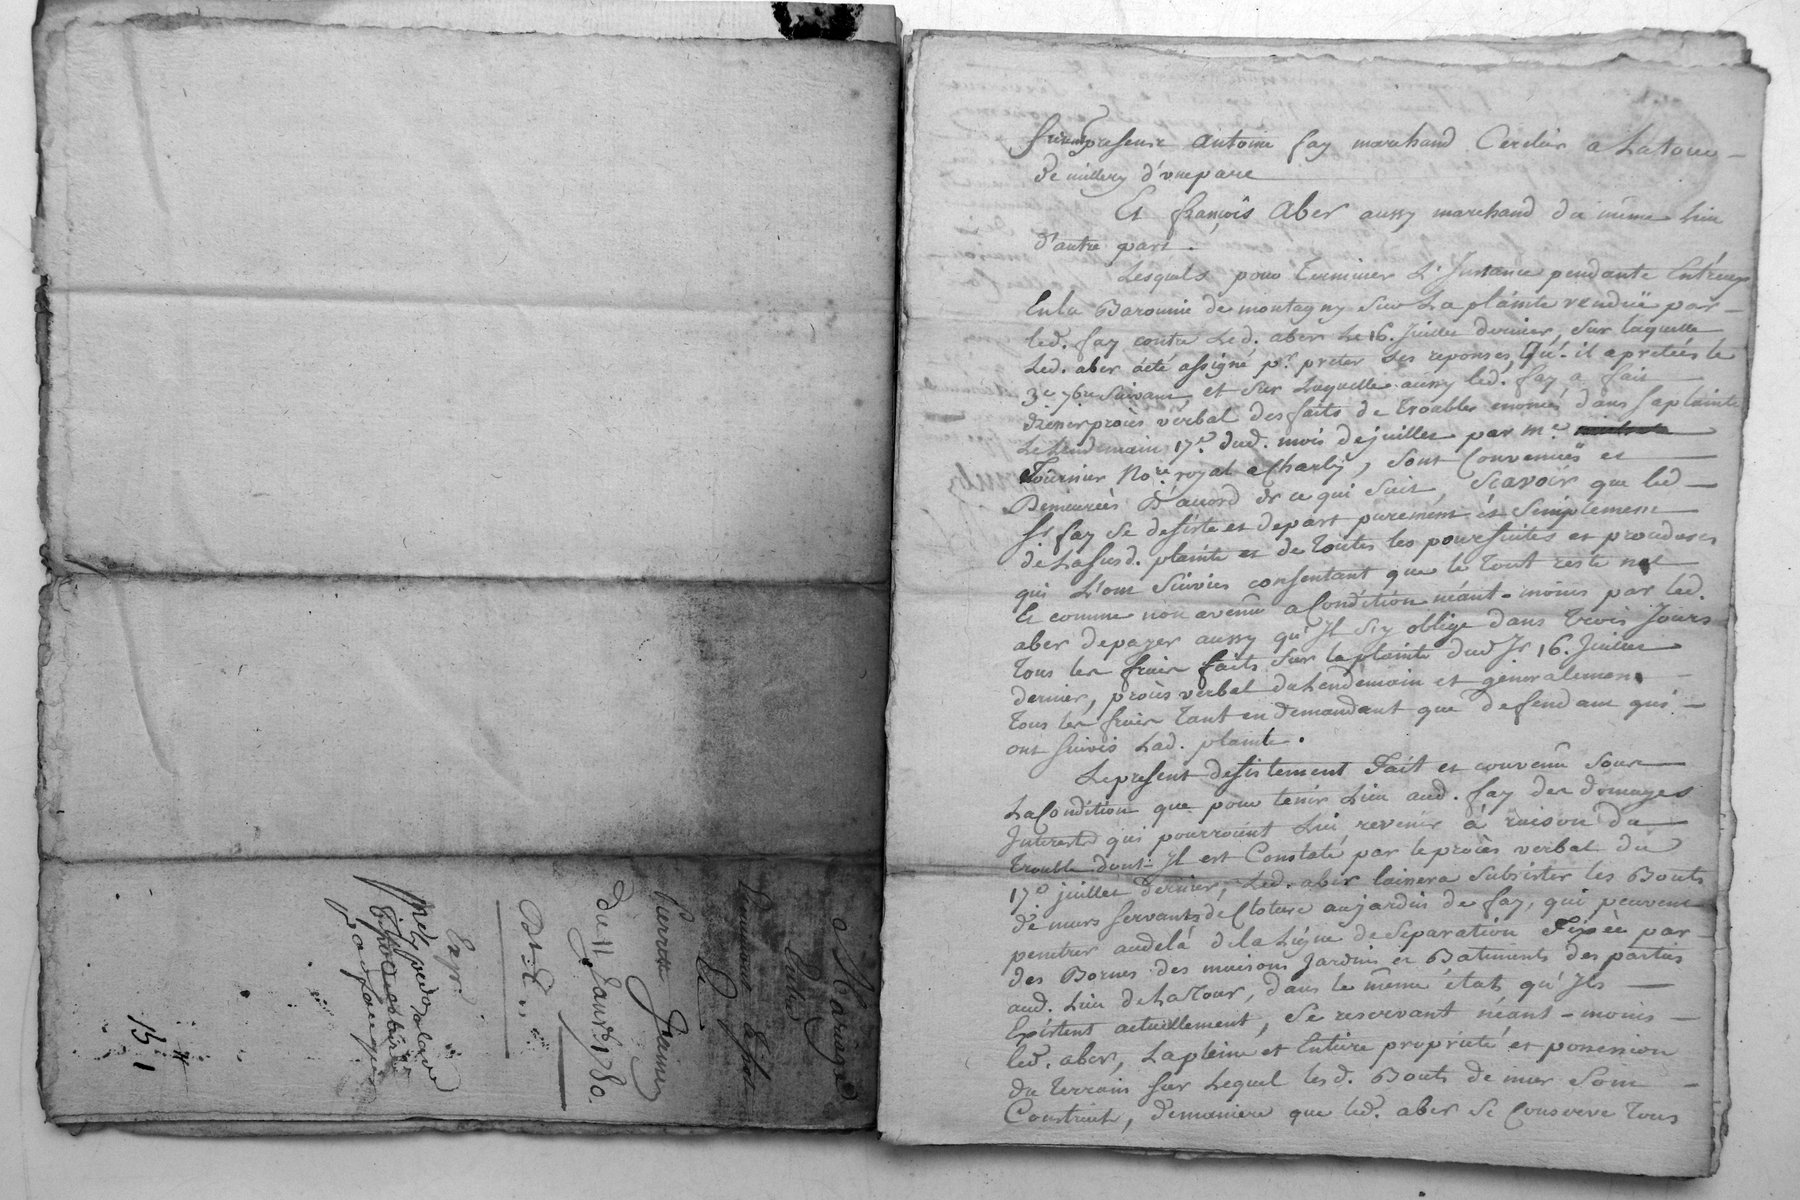 Mariage
Entre
Et
Pierrette Jeanney
Du 11 Janv. 1780.
Exp.
151
furent presents Antoine fay marchand Cerclier a La tour
de millery d'une part
Et françois Aber aussy marchand du même lieu
d'autre part.
Lesquels pour Terminer L'Instance pendante Entr'eux
En la Baronnie de montagny sur La plainte rendüe par
led. fay contre Led. aber Le 16. Juillet dernier, sur laquelle
Led. aber a été assigné pr. preter ses reponses, qu'il a pretées le
3e 7bre suivant, et sur Laquelle aussy led. fay a fait
dresser procès verbal des faits de Troubles enoncés dans sa plainte
Le Lendemain 17e. dud. mois de juillet par me.
Fournier No.re royal a Charly, sont Convenües et
Demeurées D'accord de ce qui suit, Scavoir que led
sr fay se desiste et depart purement et Simplement
de La susd. plainte et de Toutes les poursuites et procedures
qui L'ont suivies consentant que le Tout reste nul
Et comme non avenû a Condition néant-moins par led.
aber de payer aussy qu'Il s'y oblige dans trois Jours
Tous les frais faits sur la plainte dud Jr 16. Juillet
dernier, procès verbal du Lendemain et généralement
Tous les frais Tant en demandant que defendant qui
ont suivis Lad. plainte.
Le present desistement Fait et convenû sous
La Condition que pour tenir Lieu aud. fay des domages
Interests qui pourroient Lui revenir á raison du
Trouble dont Il est Constaté par le procès verbal du
17e juillet dernier, Led. aber laissera subsister les Bouts
de murs servants de Cloture au jardin de fay, qui peuvent
penetrer audelà de la Ligne de Separation Fixée par
des Bornes des maisons Jardins et Batiments des parties
aud. Lieu de La Tour, dans le même état qu'Ils
Existent actuellement, se reservant néant-moins
led. aber, La pleine et Entiere propriété et possession
du Terrain sur Lequel lesd. Bouts de mur sont
Construit, demaniere que led. aber se Conserve Tous